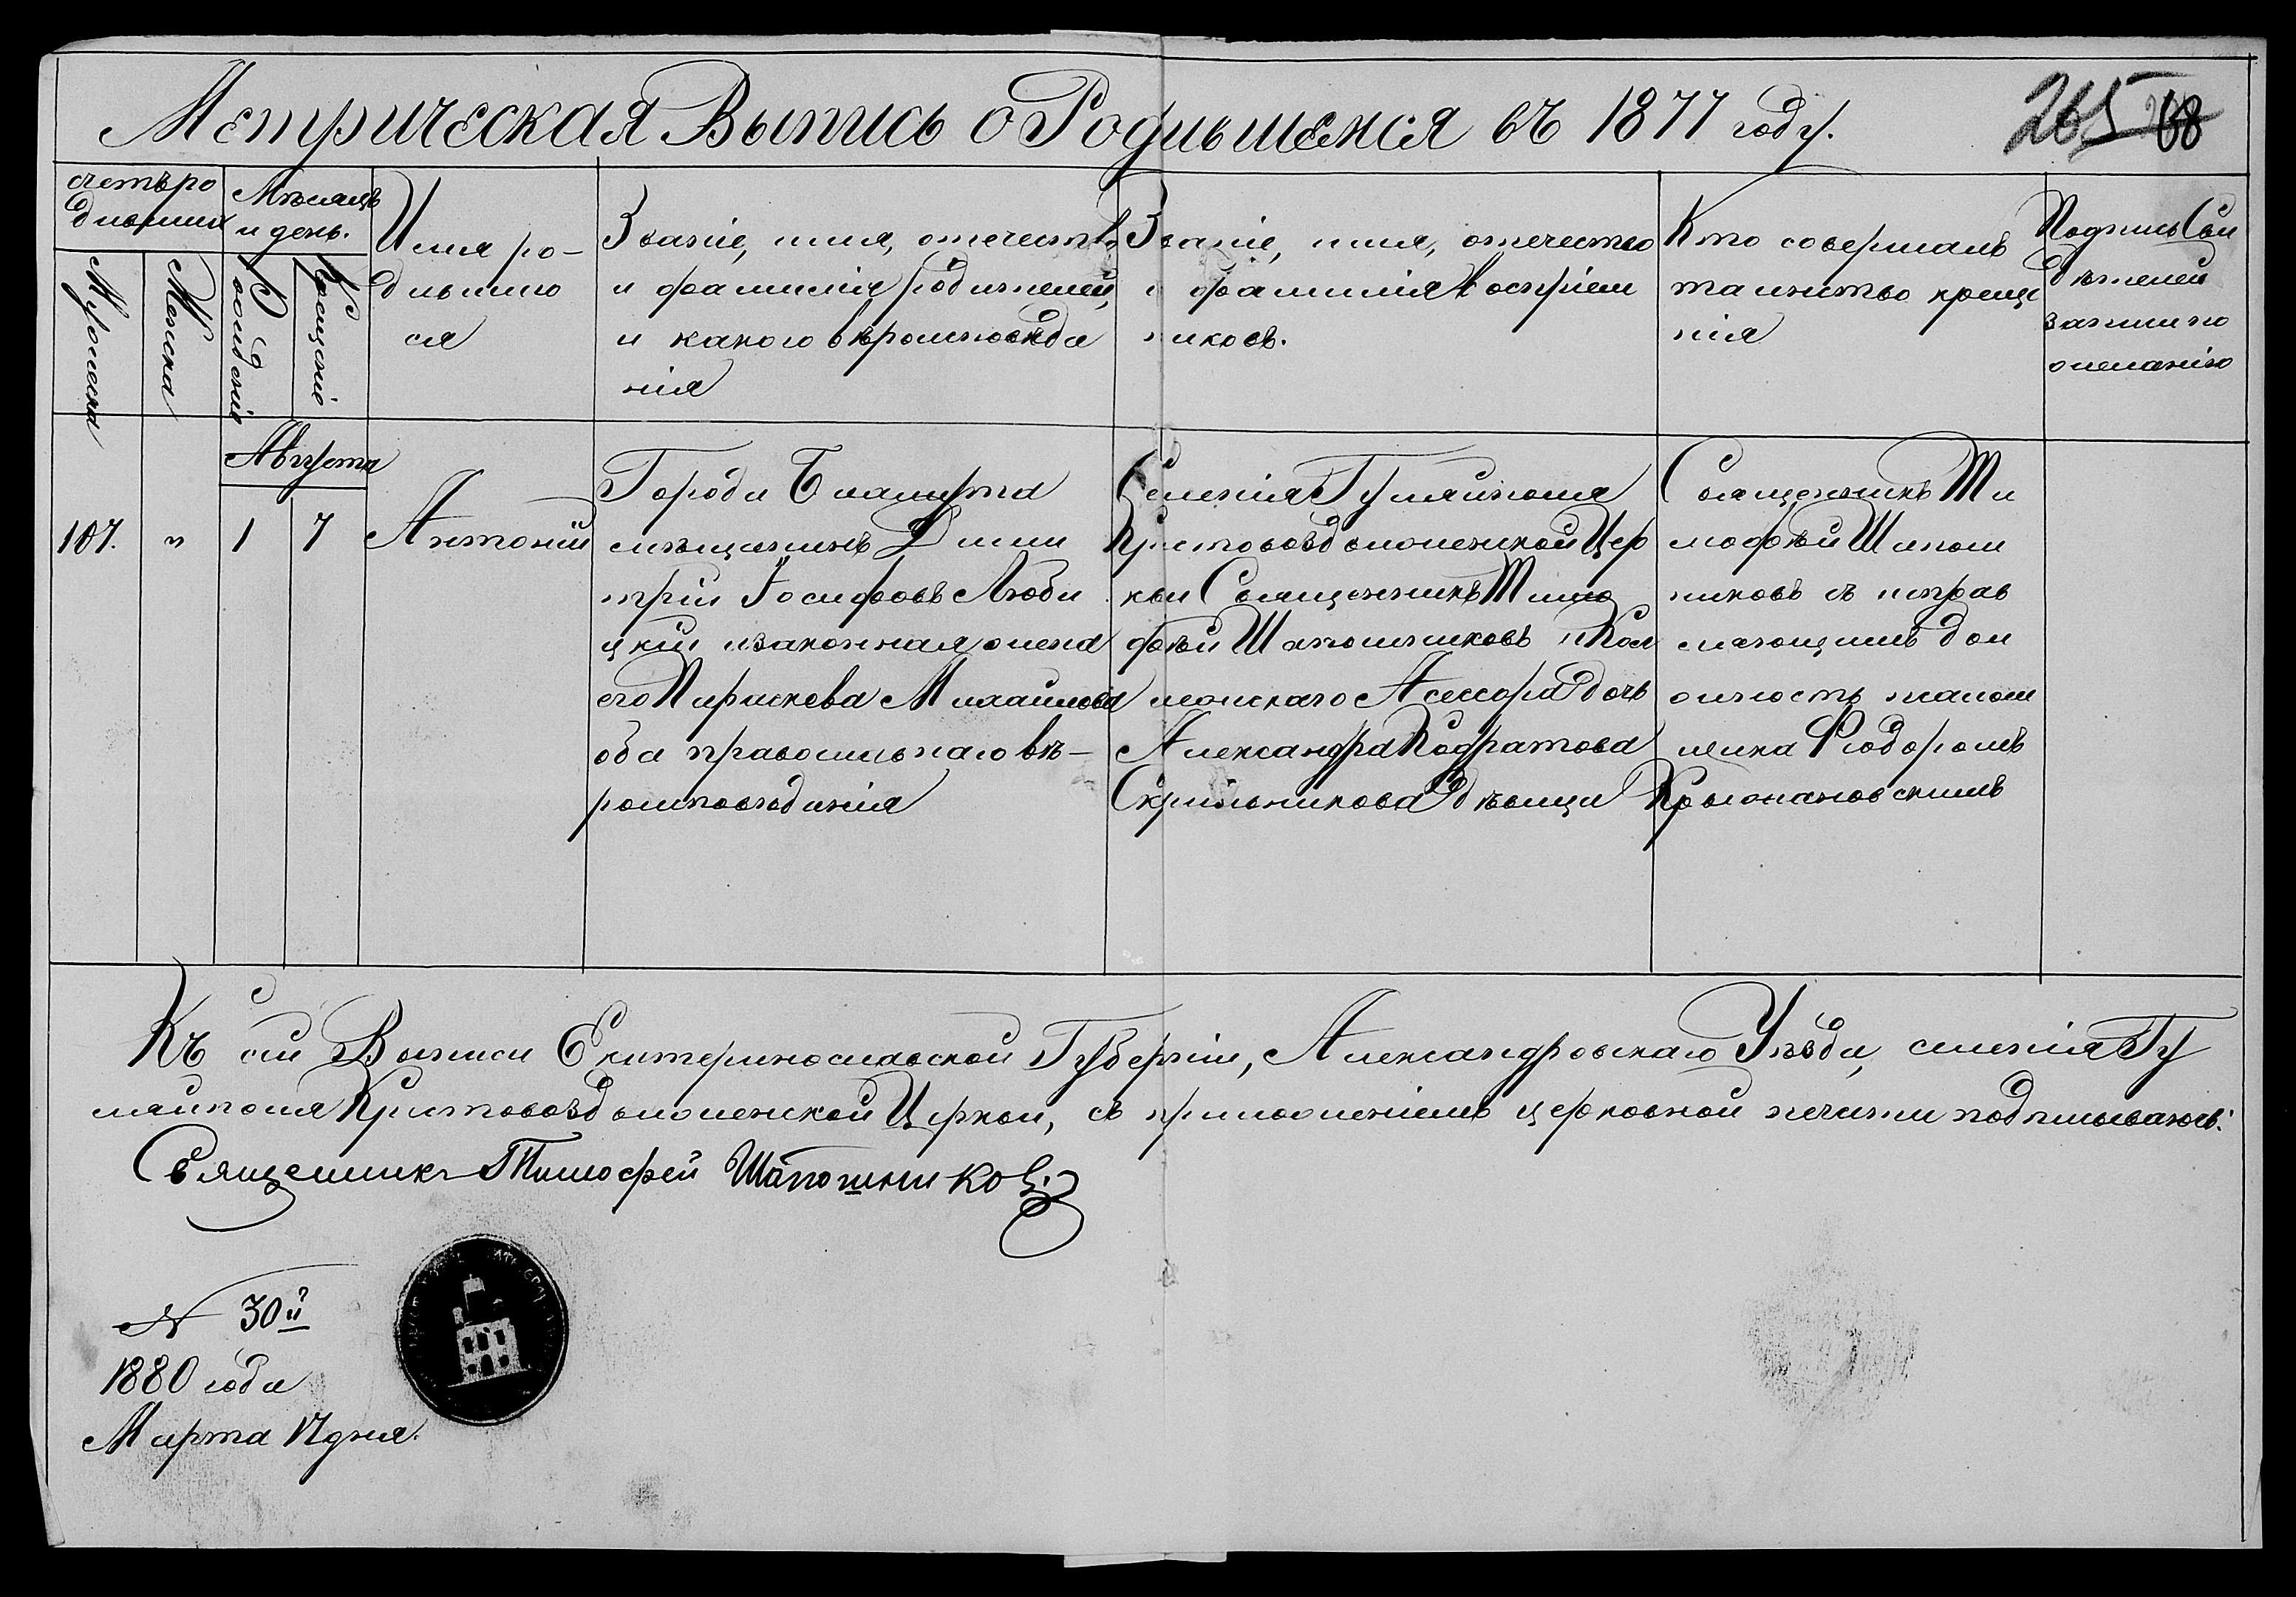 Метрическая Выпись о Родившемся въ 1877 году.
265
68
счетъ ро
дившихъ
Мѣсяцъ
и день.
Мужеска
Женска
Рожденіе
Крещеніе
Имя ро-
дившаго
ся
Званіе, имя, отечество
и фамилія родителей,
и какого вѣроисповѣда
нія
Званіе, имя, отечество
и фамилія воспріем
никовъ.
Кто совершалъ
таинство креще
нія
Подпись Сви
дѣтелей
записи по
желанію
Августа
107.
"
1
7
Антоній
Города
мѣщанинъ Дими
трій Іосифовъ Люби
цкій и законная жена
его Параскева Михайлова
оба православнаго вѣ-
роисповѣданія
Селенія Гуляйполя
Крестовоздвиженской Цер
кви Священникъ Тимо
фѣй Шапошниковъ и Кол
лежскаго Асессора дочь
Александра Кодратова
Скрыльникова дѣвица
Священникъ Ти
мофѣй Шапош
никовъ съ исправ
ляющимъ дол
жность псалом
щика Ѳеодоромъ
Крыжановскимъ
Къ сей Выписи Екатеринославской Губерніи, Александровскаго Уѣзда, селенія Гу
ляйполя Крестовоздвиженской Церкви, съ приложеніемъ церковной печати подписываюсь:
Священникъ Тимофей Шапошниковъ
N 30й
1880 года
Марта 17 дня.